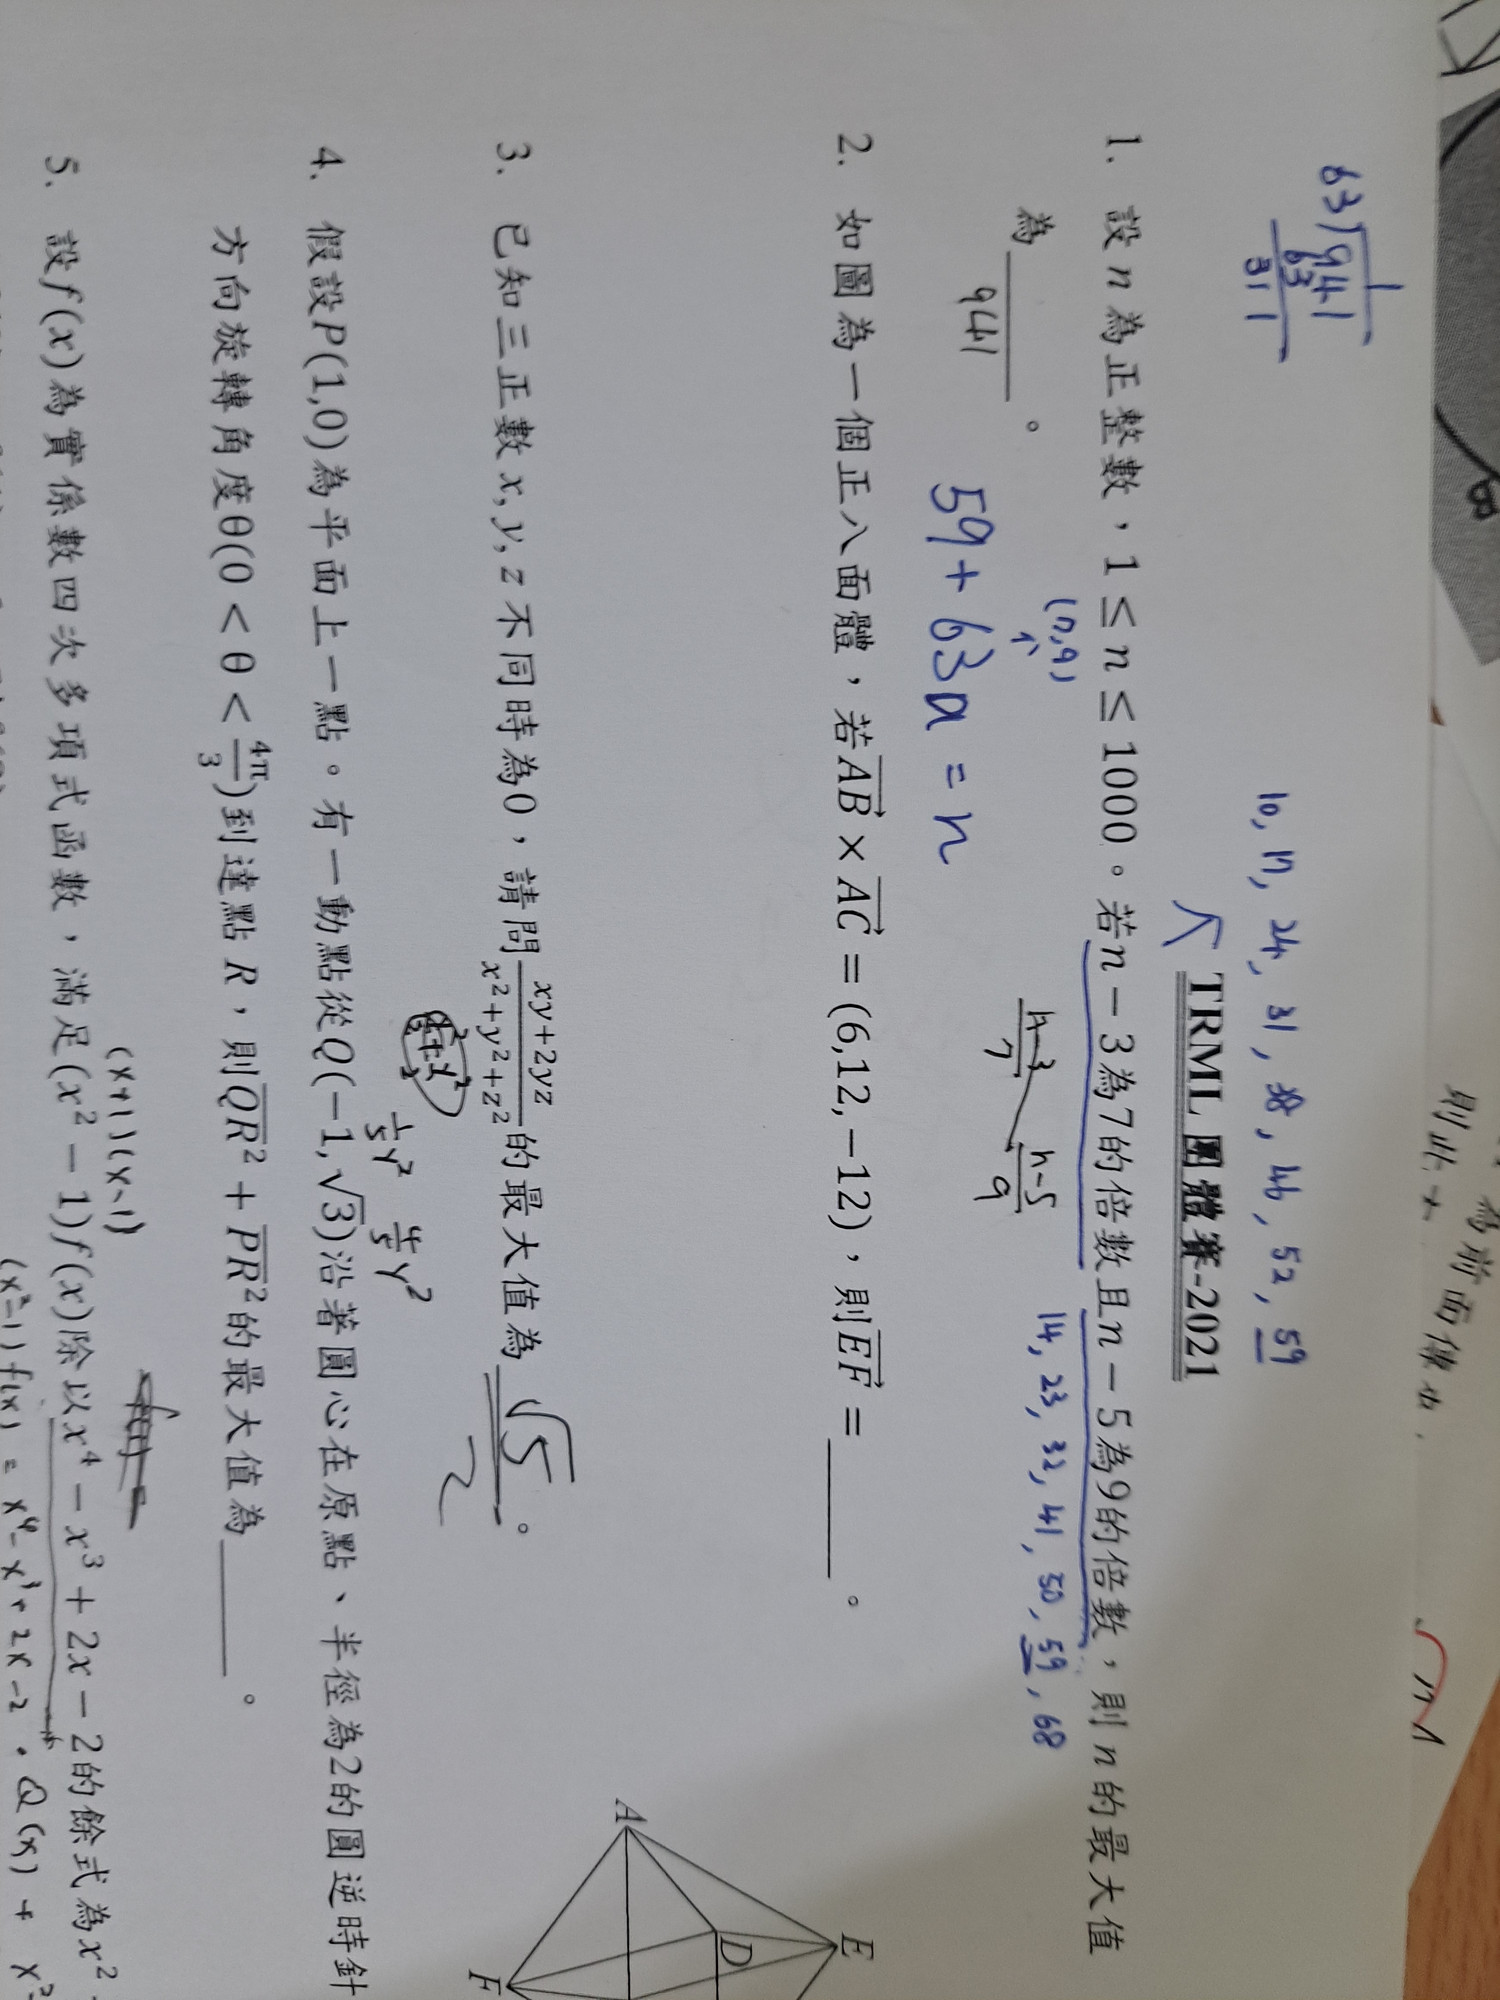 則此大
為前面像如
63)941
1
63
311
10, 17, 24, 31, 38, 46, 52, 59
TRML 團體賽-2021
1. 設 n 為正整數，1 ≤ n ≤ 1000。若n − 3為7的倍數且n − 5為9的倍數，則 n 的最大值
(7,9)
n-3/7
n-5/9
14, 23, 32, 41, 50, 59, 68
為 941 。
59 + 63a = n
2. 如圖為一個正八面體，若AB × AC = (6,12,−12)，則EF = ______。
A
E
D
F
3. 已知三正數 x, y, z 不同時為0，請問 (xy+2yz)/(x²+y²+z²) 的最大值為 √5/2 。
1/5 y² 4/5 y²
4. 假設P(1,0)為平面上一點。有一動點從Q(−1,√3)沿著圓心在原點、半徑為2的圓逆時針
方向旋轉角度θ(0 < θ < 4π/3)到達點 R，則QR² + PR²的最大值為______。
(x+1)(x-1)
5. 設f(x)為實係數四次多項式函數，滿足(x² − 1)f(x)除以x⁴ − x³ + 2x − 2的餘式為x²
(x²-1)f(x) = x⁴-x³+2x-2 · Q(x) +